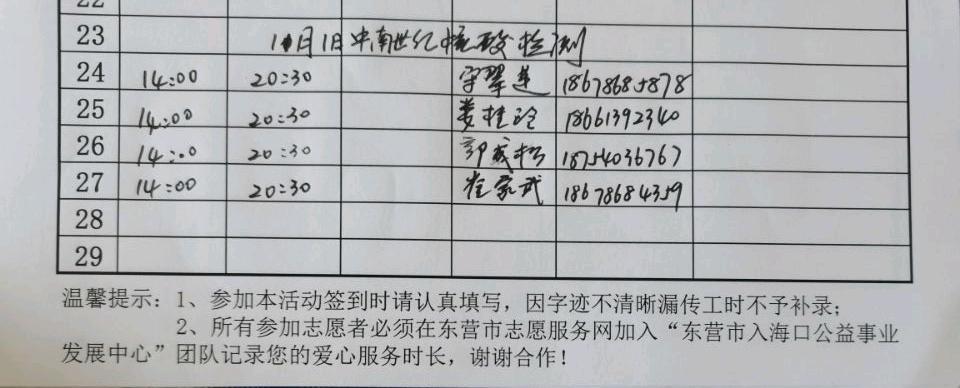 23 10月1日中南世纪核酸检测
24 14:00 20:30 18678685878
25 14:00 20:30 娄桂玲 18661392340
26 14:00 20:30 郭成松 18754036767
27 14:00 20:30 崔家武 18678684359
28
29
温馨提示：1、参加本活动签到时请认真填写，因字迹不清晰漏传工时不予补录；
2、所有参加志愿者必须在东营市志愿服务网加入“东营市入海口公益事业
发展中心”团队记录您的爱心服务时长，谢谢合作！